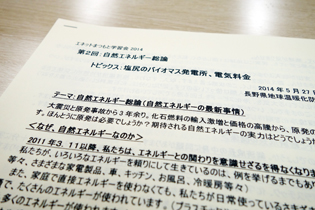 エネットまつもと学習会 2014
第2回：自然エネルギー総論
トピックス：塩尻のバイオマス発電所、電気料金
2014年5月27日
長野県地球温暖化防
テーマ：自然エネルギー総論（自然エネルギーの最新事情）
大震災と原発事故から3年余り。化石燃料の輸入激増と価格の高騰から、原発の
す。ほんとうに原発は必要でしょうか？期待される自然エネルギーの実力はどうでしょうか
＜なぜ、自然エネルギーなのか＞
2011年3.11以降、私たちは、エネルギーとの関わりを意識せざるを得なくなりま
私たちが、いろいろなエネルギーを頼りにして生きているのは、例を挙げるまでもあり
等々、さまざまな家電製品、車、キッチン、お風呂、冷暖房等々）
また、家庭で直接エネルギーを使わなくても、私たちが日常使っているさまざ
たくさんのエネルギーが使われています。
多くのエネルギーが使われ